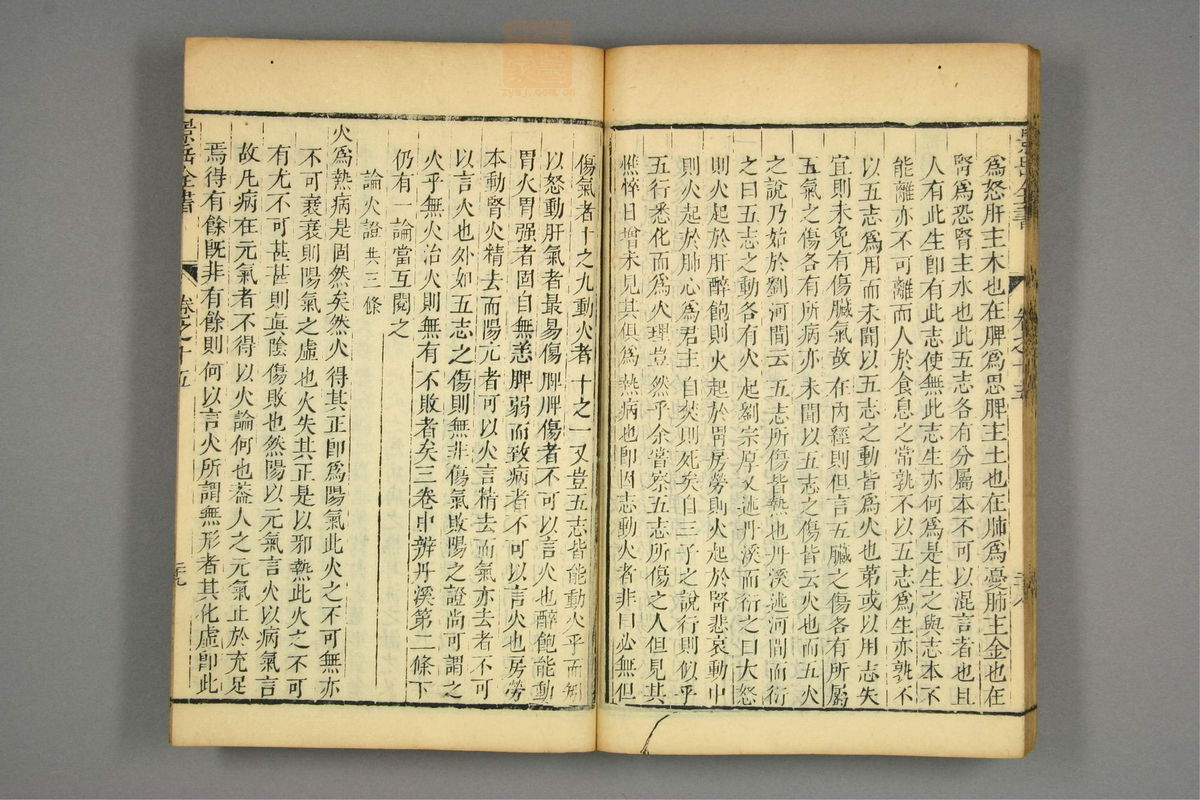 為怒肝主木也在脾為思脾主土也在肺為憂肺主金也在
腎為恐腎主水也此五志各有分屬本不可以混言者也且
人有此生卽有此志使無此志生亦何為是生之與志本不
能離亦不可離而人於食息之常孰不以五志為生亦孰不
以五志為用而未聞以五志之動皆為火也第或以用志失
宜則未免有傷臟氣故在內經則但言五臟之傷各有所屬
五氣之傷各有所病亦未聞以五志之傷皆云火也而五火
之說乃始於劉河間云五志所傷皆熱也丹溪述河間而衍
之曰五志之動各有火起劉宗厚又述丹溪而衍之曰大怒
則火起於肝醉飽則火起於胃房勞則火起於腎悲哀動中
則火起於肺心為君主自焚則死矣自三子之說行則似乎
五行悉化而為火理豈然乎余嘗察五志所傷之人但見其
憔悴日增未見其俱為熱病也卽因志動火者非曰必無但
傷氣者十之九動火者十之一又豈五志皆能動火乎而矧
以怒動肝氣者最易傷脾脾傷者不可以言火也醉飽能動
胃火胃强者固自無恙脾弱而致病者不可以言火也房勞
本動腎火精去而陽亢者可以火言精去而氣亦去者不可
以言火也外如五志之傷則無非傷氣敗陽之證尚可謂之
火乎無火治火則無有不敗者矣三卷中辨丹溪第二條下
仍有一論當互閱之
論火證共三條
火為熱病是固然矣然火得其正卽為陽氣此火之不可無亦
不可衰衰則陽氣之虛也火失其正是以邪熱此火之不可
有尤不可甚甚則眞陰傷敗也然陽以元氣言火以病氣言
故凡病在元氣者不得以火論何也葢人之元氣止於充足
焉得有餘旣非有餘則何以言火所謂無形者其化虛卽此
景岳全書
卷之十五